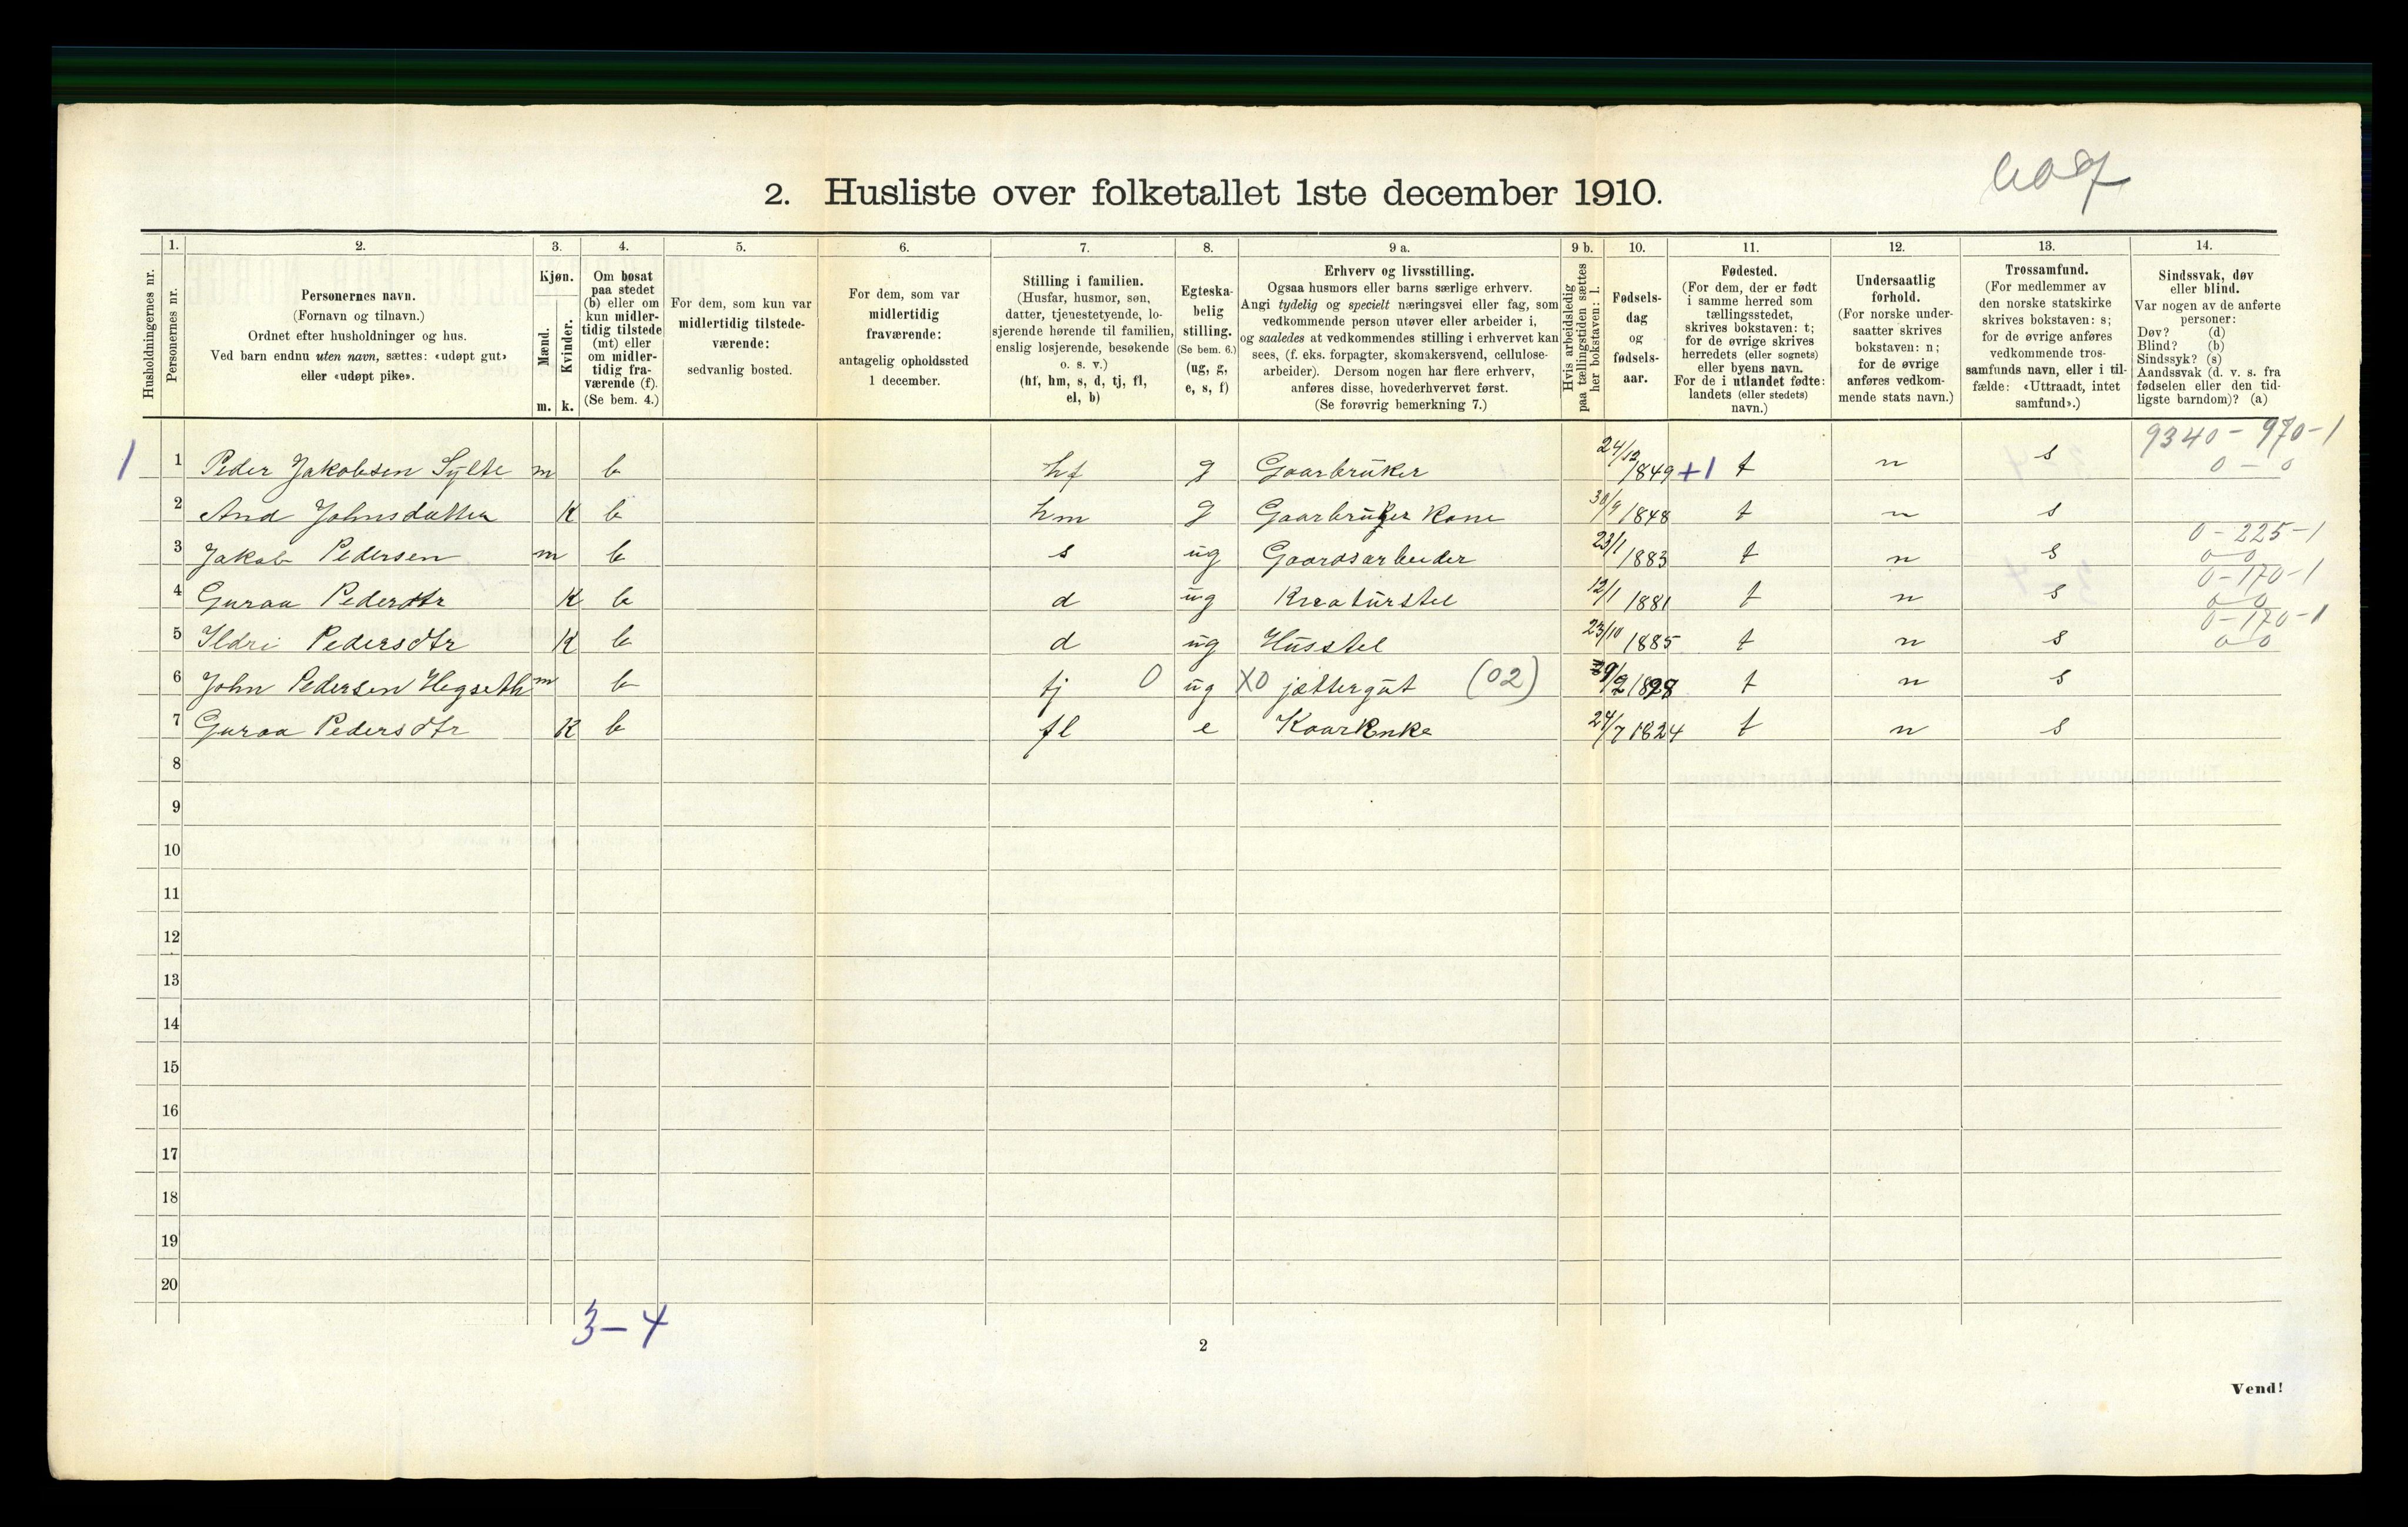 2. Husliste over folketallet 1ste december 1910.
Husholdningernes nr.
1. Personernes nr.
2. Personernes navn. (Fornavn og tilnavn.) Ordnet efter husholdninger og hus. Ved barn endnu uten navn, sættes: «udøpt gut» eller «udøpt pike».
3. Kjøn. Mænd. m. Kvinder. k.
4. Om bosat paa stedet (b) eller om kun midlertidig tilstede (mt) eller om midlertidig fraværende (f). (Se bem. 4.)
5. For dem, som kun var midlertidig tilstedeværende: sedvanlig bosted.
6. For dem, som var midlertidig fraværende: antagelig opholdssted 1 december.
7. Stilling i familien. (Husfar, husmor, søn, datter, tjenestetyende, losjerende hørende til familien, enslig losjerende, besøkende o. s. v.) (hf, hm, s, d, tj, fl, el, b)
8. Egteskabelig stilling. (Se bem. 6.) (ug, g, e, s, f)
9 a. Erhverv og livsstilling. Ogsaa husmors eller barns særlige erhverv. Angi tydelig og specielt næringsvei eller fag, som vedkommende person utøver eller arbeider i, og saaledes at vedkommendes stilling i erhvervet kan sees, (f. eks. forpagter, skomakersvend, cellulosearbeider). Dersom nogen har flere erhverv, anføres disse, hovederhvervet først. (Se forøvrig bemerkning 7.)
9 b. Hvis arbeidsledig paa tællingstiden sættes her bokstaven: l.
10. Fødselsdag og fødselsaar.
11. Fødested. (For dem, der er født i samme herred som tællingsstedet, skrives bokstaven: t; for de øvrige skrives herredets (eller sognets) eller byens navn. For de i utlandet fødte: landets (eller stedets) navn.)
12. Undersaatlig forhold. (For norske undersaatter skrives bokstaven: n; for de øvrige anføres vedkommende stats navn.)
13. Trossamfund. (For medlemmer av den norske statskirke skrives bokstaven: s; for de øvrige anføres vedkommende trossamfunds navn, eller i tilfælde: «Uttraadt, intet samfund».)
14. Sindssvak, døv eller blind. Var nogen av de anførte personer: Døv? (d) Blind? (b) Sindssyk? (s) Aandssvak (d. v. s. fra fødselen eller den tidligste barndom)? (a)
1 1 Peder Jakobsen Sylte m b hf g Gaarbruker 24/12 1849 +1 t n s 9340 - 970-1 0 - 0
2 And Johnsdatter K b hm g Gaarbruker Kone 30/9 1848 t n s
3 Jakob Pedersen m b s ug Gaardsarbeider 23/1 1883 t n s 0-225-1 0-0
4 Guraa Pedersdtr K b d ug Kreaturstel 12/1 1881 t n s 0-170-1 0-0
5 Ildri Pedersdtr K b d ug Husstel 23/10 1885 t n s 0-170-1 0-0
6 John Pedersen Hegseth m b tj 0 ug X0 jættergut (02) 29/2 1898 t n s
7 Guraa Pedersdtr K b fl e Kaarenke 24/7 1824 t n s
8
9
10
11
12
13
14
15
16
17
18
19
20
3-4
2
Vend!